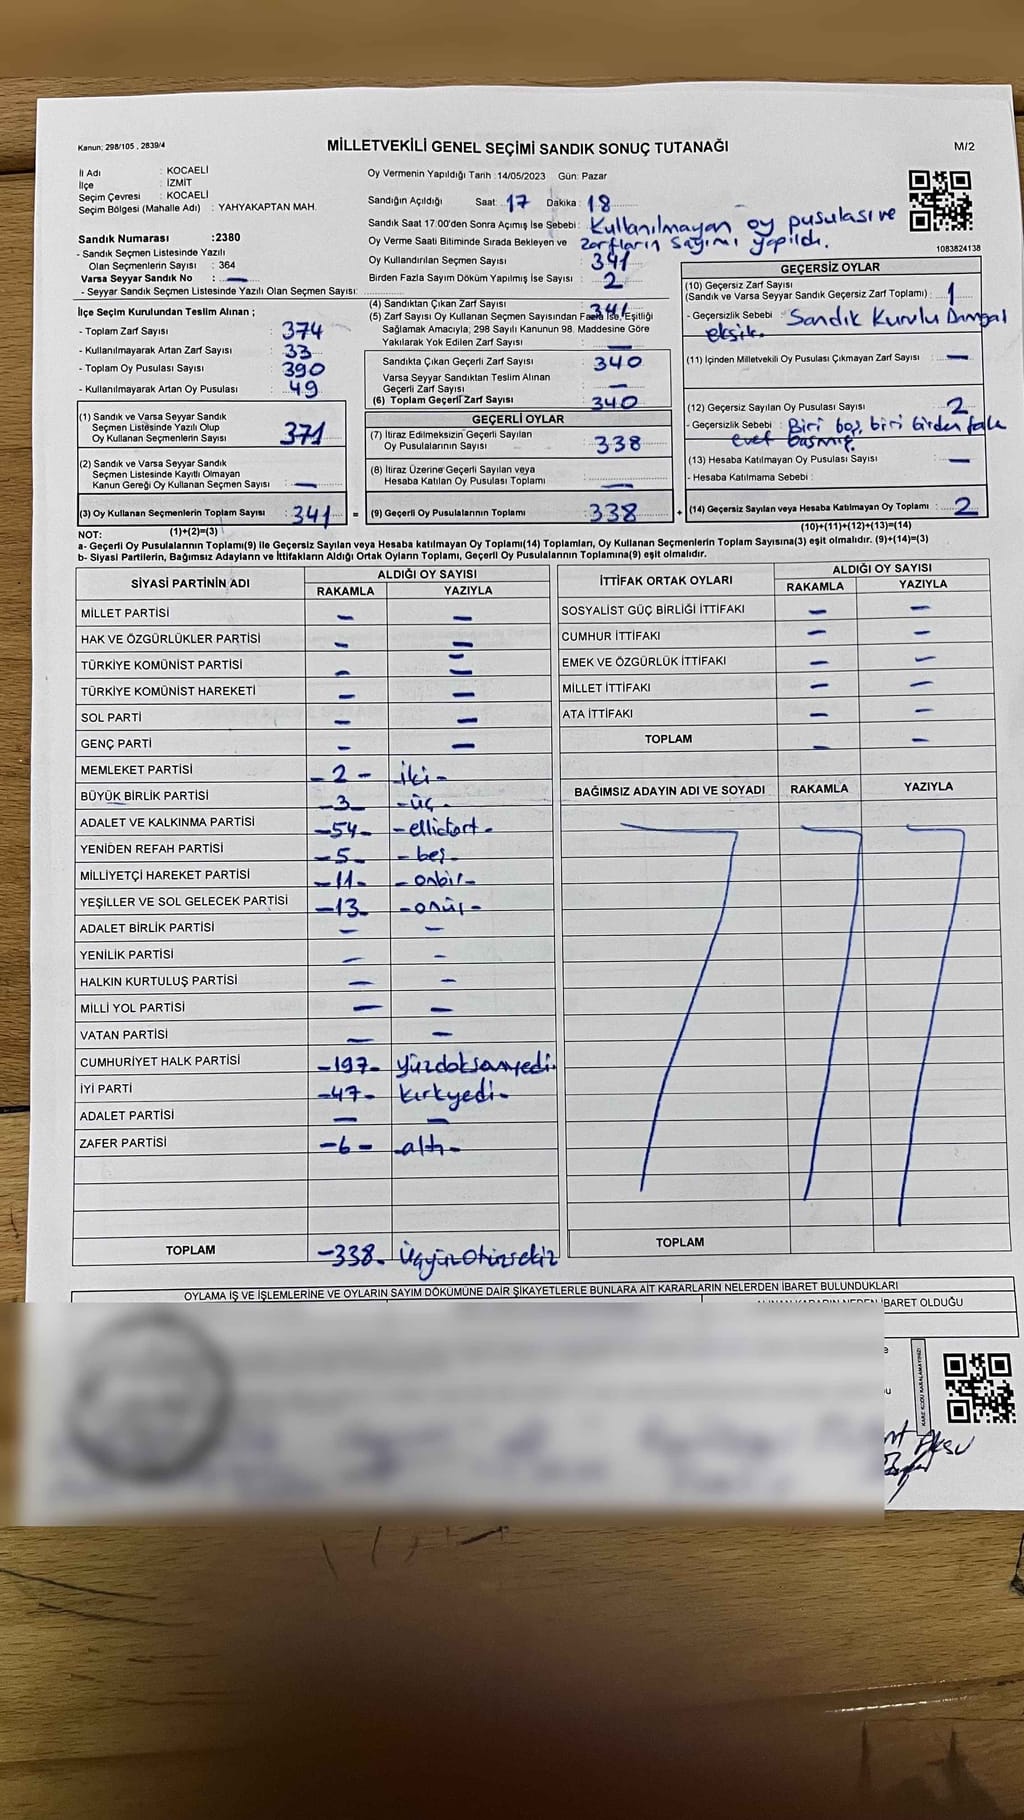 Kanun; 298/105 , 2839/4
MİLLETVEKİLİ GENEL SEÇİMİ SANDIK SONUÇ TUTANAĞI
M/2
İl Adı : KOCAELİ
İlçe : İZMİT
Seçim Çevresi : KOCAELİ
Seçim Bölgesi (Mahalle Adı) : YAHYAKAPTAN MAH.
Sandık Numarası :2380
- Sandık Seçmen Listesinde Yazılı
Olan Seçmenlerin Sayısı : 364
Varsa Seyyar Sandık No : —
- Seyyar Sandık Seçmen Listesinde Yazılı Olan Seçmen Sayısı:
Oy Vermenin Yapıldığı Tarih :14/05/2023 Gün: Pazar
Sandığın Açıldığı Saat: 17 Dakika : 18
Sandık Saat 17.00'den Sonra Açımış İse Sebebi: Kullanılmayan oy pusulası ve
Oy Verme Saati Bitiminde Sırada Bekleyen ve zarfların sayımı yapıldı.
Oy Kullandırılan Seçmen Sayısı : 341
Birden Fazla Sayım Döküm Yapılmış İse Sayısı : 2
1083824138
İlçe Seçim Kurulundan Teslim Alınan ;
- Toplam Zarf Sayısı : 374
- Kullanılmayarak Artan Zarf Sayısı : 33
- Toplam Oy Pusulası Sayısı : 390
- Kullanılmayarak Artan Oy Pusulası : 49
(1) Sandık ve Varsa Seyyar Sandık
Seçmen Listesinde Yazılı Olup
Oy Kullanan Seçmenlerin Sayısı : 371
(2) Sandık ve Varsa Seyyar Sandık
Seçmen Listesinde Kayıtlı Olmayan
Kanun Gereği Oy Kullanan Seçmen Sayısı : —
(3) Oy Kullanan Seçmenlerin Toplam Sayısı : 341 =
(1)+(2)=(3)
(4) Sandıktan Çıkan Zarf Sayısı : 341
(5) Zarf Sayısı Oy Kullanan Seçmen Sayısından Fazla İse, Eşitliği
Sağlamak Amacıyla; 298 Sayılı Kanunun 98. Maddesine Göre
Yakılarak Yok Edilen Zarf Sayısı : —
Sandıkta Çıkan Geçerli Zarf Sayısı : 340
Varsa Seyyar Sandıktan Teslim Alınan
Geçerli Zarf Sayısı : —
(6) Toplam Geçerli Zarf Sayısı : 340
GEÇERLİ OYLAR
(7) İtiraz Edilmeksizin Geçerli Sayılan
Oy Pusulalarının Sayısı : 338
(8) İtiraz Üzerine Geçerli Sayılan veya
Hesaba Katılan Oy Pusulası Toplamı : —
(9) Geçerli Oy Pusulalarının Toplamı : 338 +
GEÇERSİZ OYLAR
(10) Geçersiz Zarf Sayısı
(Sandık ve Varsa Seyyar Sandık Geçersiz Zarf Toplamı) : 1
- Geçersizlik Sebebi : Sandık Kurulu Damgal
eksik.
(11) İçinden Milletvekili Oy Pusulası Çıkmayan Zarf Sayısı : —
(12) Geçersiz Sayılan Oy Pusulası Sayısı : 2
- Geçersizlik Sebebi : Biri boş, biri birden fazla
evet basmış.
(13) Hesaba Katılmayan Oy Pusulası Sayısı : —
- Hesaba Katılmama Sebebi :
(14) Geçersiz Sayılan veya Hesaba Katılmayan Oy Toplamı : 2
(10)+(11)+(12)+(13)=(14)
NOT:
a- Geçerli Oy Pusulalarının Toplamı(9) ile Geçersiz Sayılan veya Hesaba katılmayan Oy Toplamı(14) Toplamları, Oy Kullanan Seçmenlerin Toplam Sayısına(3) eşit olmalıdır. (9)+(14)=(3)
b- Siyasi Partilerin, Bağımsız Adayların ve İttifakların Aldığı Ortak Oyların Toplamı, Geçerli Oy Pusulalarının Toplamına(9) eşit olmalıdır.
SİYASİ PARTİNİN ADI ALDIĞI OY SAYISI
RAKAMLA YAZIYLA
MİLLET PARTİSİ — —
HAK VE ÖZGÜRLÜKLER PARTİSİ — —
TÜRKİYE KOMÜNİST PARTİSİ — —
TÜRKİYE KOMÜNİST HAREKETİ — —
SOL PARTİ — —
GENÇ PARTİ — —
MEMLEKET PARTİSİ -2- iki-
BÜYÜK BİRLİK PARTİSİ -3- -üç-
ADALET VE KALKINMA PARTİSİ -54- -ellidört-
YENİDEN REFAH PARTİSİ -5- -beş-
MİLLİYETÇİ HAREKET PARTİSİ -11- -onbir-
YEŞİLLER VE SOL GELECEK PARTİSİ -13- -onüç-
ADALET BİRLİK PARTİSİ — —
YENİLİK PARTİSİ — —
HALKIN KURTULUŞ PARTİSİ — —
MİLLİ YOL PARTİSİ — —
VATAN PARTİSİ — —
CUMHURİYET HALK PARTİSİ -197- yüzdoksanyedi-
İYİ PARTİ -47- kırkyedi-
ADALET PARTİSİ — —
ZAFER PARTİSİ -6- -altı-
TOPLAM -338- üçyüzotuzsekiz
İTTİFAK ORTAK OYLARI ALDIĞI OY SAYISI
RAKAMLA YAZIYLA
SOSYALİST GÜÇ BİRLİĞİ İTTİFAKI — —
CUMHUR İTTİFAKI — —
EMEK VE ÖZGÜRLÜK İTTİFAKI — —
MİLLET İTTİFAKI — —
ATA İTTİFAKI — —
TOPLAM — —
BAĞIMSIZ ADAYIN ADI VE SOYADI RAKAMLA YAZIYLA
TOPLAM
OYLAMA İŞ VE İŞLEMLERİNE VE OYLARIN SAYIM DÖKÜMÜNE DAİR ŞİKAYETLERLE BUNLARA AİT KARARLARIN NELERDEN İBARET BULUNDUKLARI
İBARET OLDUĞU
KARE KODU KARALAMAYINIZ!
Aksu